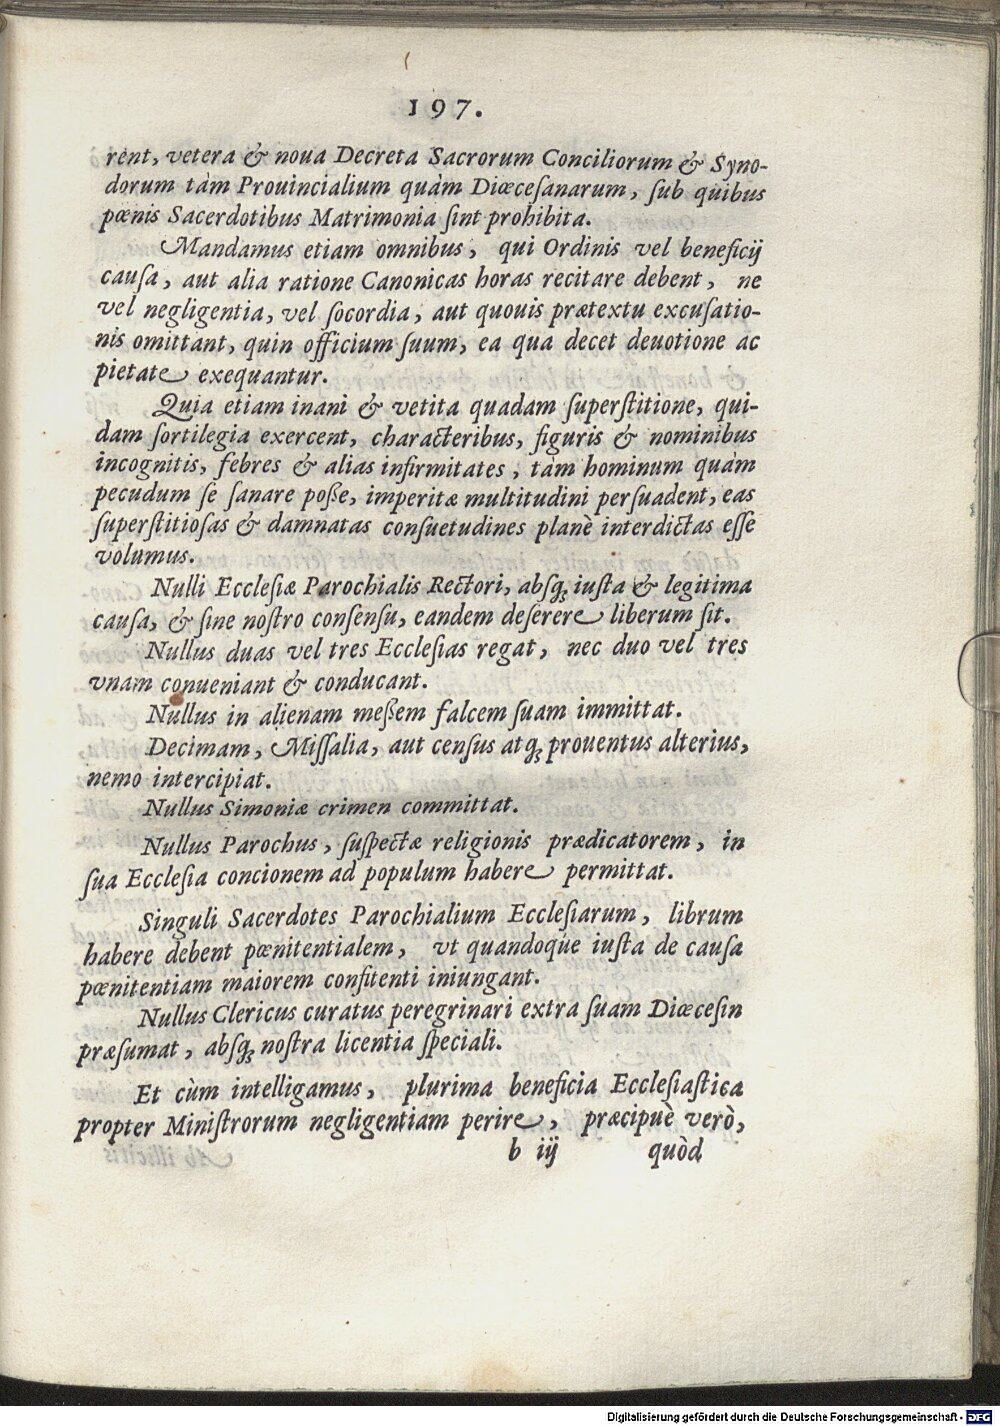 197.
rent, vetera & noua Decreta Sacrorum Conciliorum & Syno-
dorum tàm Prouincialium quàm Diœceſanarum, ſub quibus
pœnis Sacerdotibus Matrimonia ſint prohibita.
Mandamus etiam omnibus, qui Ordinis vel beneficij
cauſa, aut alia ratione Canonicas horas recitare debent, ne
vel negligentia, vel ſocordia, aut quouis prætextu excuſatio-
nis omittant, quin officium ſuum, ea qua decet deuotione ac
pietate exequantur.
Quia etiam inani & vetita quadam ſuperſtitione, qui-
dam ſortilegia exercent, characteribus, figuris & nominibus
incognitis, febres & alias infirmitates, tàm hominum quàm
pecudum ſe ſanare poße, imperitæ multitudini perſuadent, eas
ſuperſtitioſas & damnatas conſuetudines planè interdictas eſſe
volumus.
Nulli Eccleſiæ Parochialis Rectori, abſq; iuſta & legitima
cauſa, & ſine noſtro conſenſu, eandem deſerere liberum ſit.
Nullus duas vel tres Eccleſias regat, nec duo vel tres
vnam conueniant & conducant.
Nullus in alienam meßem falcem ſuam immittat.
Decimam, Miſſalia, aut cenſus atq; prouentus alterius,
nemo intercipiat.
Nullus Simoniæ crimen committat.
Nullus Parochus, ſuſpectæ religionis prædicatorem, in
ſua Eccleſia concionem ad populum habere permittat.
Singuli Sacerdotes Parochialium Eccleſiarum, librum
habere debent pœnitentialem, vt quandoq́ue iuſta de cauſa
pœnitentiam maiorem confitenti iniungant.
Nullus Clericus curatus peregrinari extra ſuam Diœceſin
præſumat, abſq; noſtra licentia ſpeciali.
Et cùm intelligamus, plurima beneficia Eccleſiaſtica
propter Miniſtrorum negligentiam perire, præcipuè verò,
b iij quòd
Digitalisierung gefördert durch die Deutsche Forschungsgemeinschaft - DFG